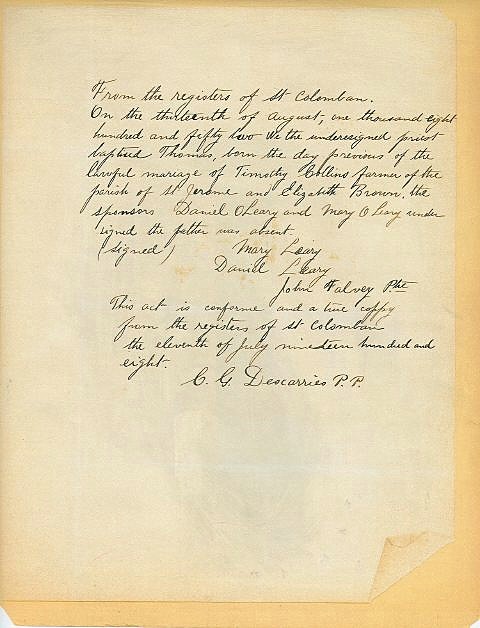 From the registers of St Colomban.
On the thirteenth of August, one thousand eight
hundred and fifty two We the underesigned priest
baptised Thomas, born the day previous of the
lawful mariage of Timothy Collins farmer of the
parish of St Jerome and Elizabeth Brown, the
sponsors Daniel O'Leary and Mary O Leary under
signed the father was absent.
(signed) Mary Leary
Daniel Leary
John Falvey Ptre
This act is conforme and a true coppy
from the registers of St Colomban
the eleventh of July nineteen hundred and
eight.
C. G. Descarries P.P.